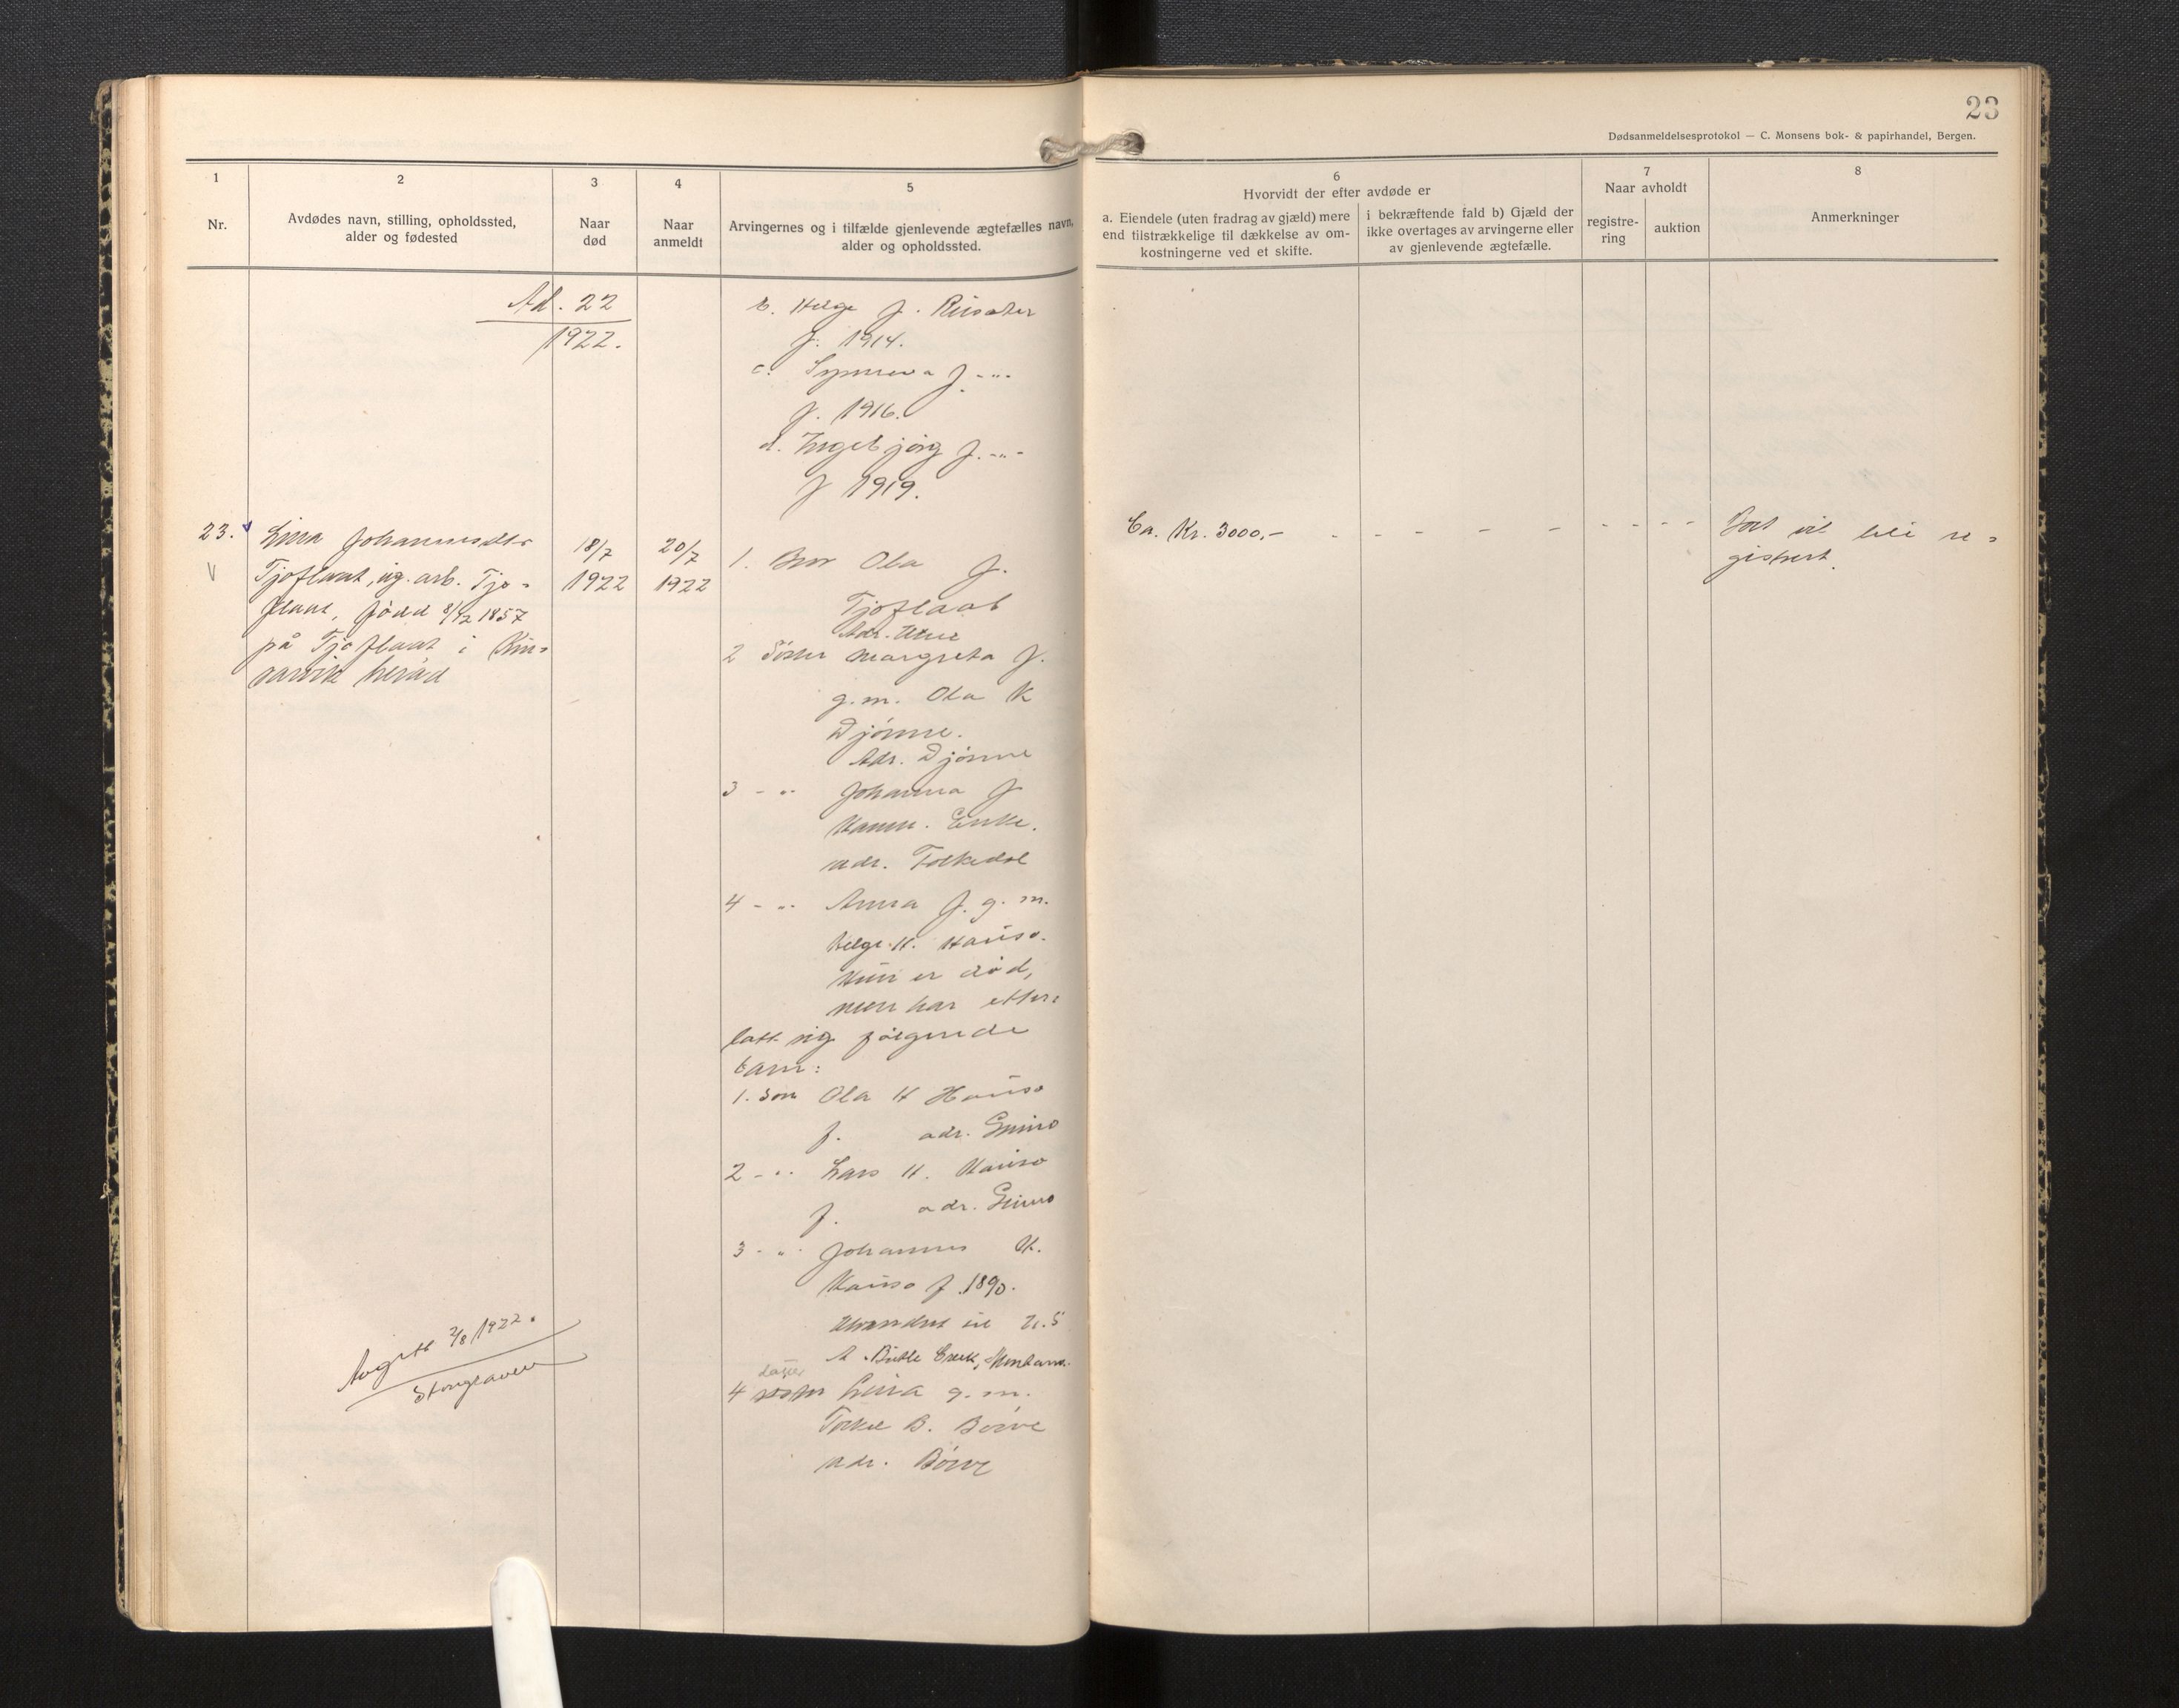 23
Dødsanmeldelsesprotokol — C. Monsens bok- & papirhandel, Bergen.
1
Nr.
2
Avdødes navn, stilling, opholdssted,
alder og fødested
3
Naar
død
4
Naar
anmeldt
5
Arvingernes og i tilfælde gjenlevende ægtefælles navn,
alder og opholdssted.
6
Hvorvidt der efter avdøde er
a. Eiendele (uten fradrag av gjæld) mere
end tilstrækkelige til dækkelse av om-
kostningerne ved et skifte.
i bekræftende fald b) Gjæld der
ikke overtages av arvingerne eller
av gjenlevende ægtefælle.
7
Naar avholdt
registre-
ring
auktion
8
Anmerkninger
Ad. 22
1922.
b. Helge J.
f. 1914.
c. Synneva J. -"-
f. 1916.
d. Ingebjörg J. -"-
f 1919.
23.
Lina Johannesdtr
Tjoflaat, ug. arb. Tjo-
flaat, född 8/12 1857
på Tjoflaat i Kin-
sarvik herad
18/7
1922
20/7
1922
1. Bror Ola J.
Tjoflaat
Adr. Utne
2 Söster Margreta J.
g.m. Ola K
Djönne.
Adr. Djönne
3 - " Johanna J
Hamre. Enke.
adr. Folkedal
4 - " Anna J. g. m.
Helge H. Hauso.
Hun er död,
men har etter-
latt sig fölgende
barn:
1. Son Ola H Hauso
f. adr. Grimo
2 - " Lars H. Hauso
f. adr. Grimo
3 - " Johannes H.
Hauso f. 1890.
Utvandret til U.S
A. Butte Creek, Montana.
datter
4 Lina g. m.
Torkel B. Börve
adr. Börve
Ca. Kr. 3000,- - - - - - - - -
Boet vil bli re-
gistrert.
Avgitt 2/8 1922.
Storegraven